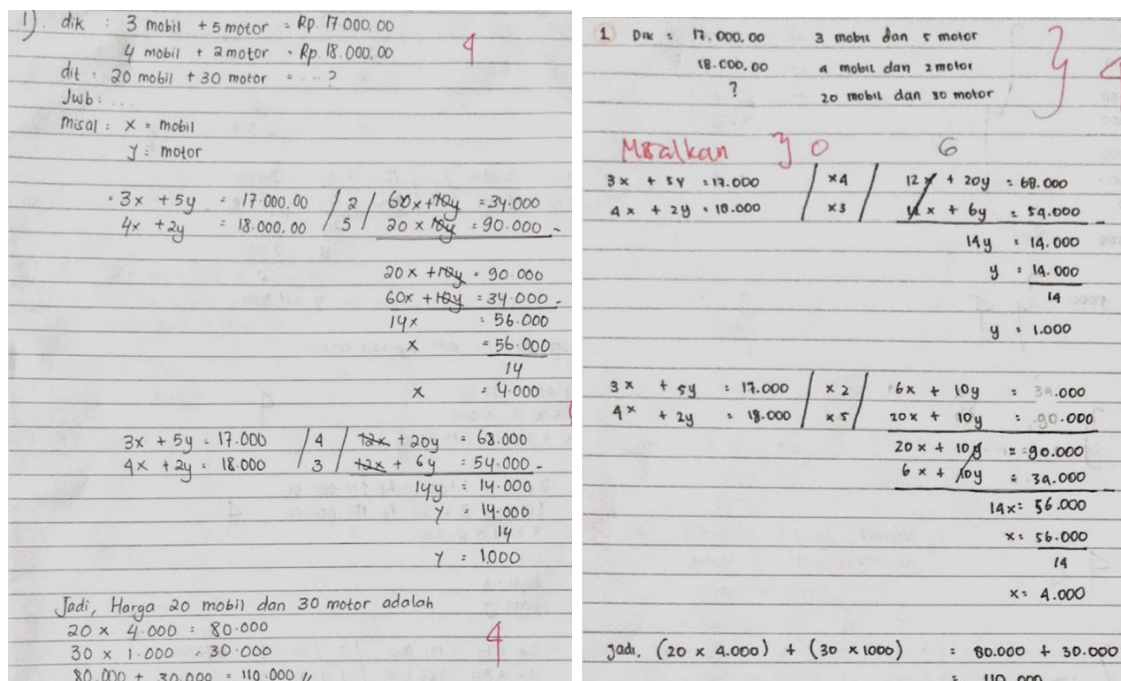 1). dik : 3 mobil + 5 motor = Rp. 17.000,00
4 mobil + 2 motor = Rp. 18.000,00
4
dit : 20 mobil + 30 motor = ... ?
Jwb : ...
misal : x = mobil
y = motor
3x + 5y = 17.000,00 / 2 / 60x + 10y = 34.000
4x + 2y = 18.000,00 / 5 / 20x 10y = 90.000 -
20x + 10y = 90.000
60x + 10y = 34.000 -
14x = 56.000
x = 56.000
14
x = 4.000
3x + 5y = 17.000 / 4 / 12x + 20y = 68.000
4x + 2y = 18.000 / 3 / 12x + 6y = 54.000 -
14y = 14.000
y = 14.000
14
y = 1.000
Jadi, Harga 20 mobil dan 30 motor adalah
20 x 4.000 = 80.000
30 x 1.000 = 30.000
4
80.000 + 30.000 = 110.000 //
1 Dik = 17.000,00 3 mobil dan 5 motor
18.000,00 4 mobil dan 2 motor
? 20 mobil dan 30 motor
Misalkan } 0 6
3x + 5y = 17.000 / x4 / 12x + 20y = 68.000
4x + 2y = 18.000 x3 12x + 6y = 54.000 -
14y = 14.000
y = 14.000
14
y = 1.000
3x + 5y = 17.000 / x2 / 6x + 10y = 34.000
4x + 2y = 18.000 / x5 / 20x + 10y = 90.000
20x + 10y = 90.000
6x + 10y = 34.000
14x = 56.000
x = 56.000
14
x = 4.000
Jadi, (20 x 4.000) + (30 x 1000) = 80.000 + 30.000
= 110.000